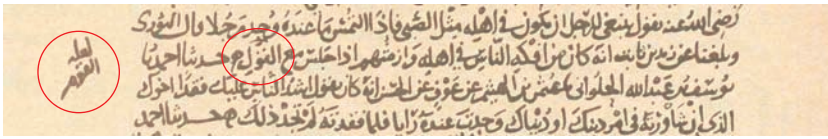 رضى الله عنه يقول ينبغى للرجل ان يكون فى اهله مثل الصبى فاذا التمس ما عنده وجد رجلا وقال الثورى
وبلغنا عن زيد بن ثابت انه كان من افكه الناس فى اهله وازمتهم اذا جلس مع القوم حدثنا احمد نا
يوسف بن عبد الله الحلوانى نا عثمن بن الهيثم عن عوف عن الحسن انه كان يقول اشد الناس عليك فقدا اخوك
الذى ان شاورته فى امر دينك او دنياك وجدت عنده رايا فلما فقدته لم تجد ذلك حدثنا احمد
لعله
القوم